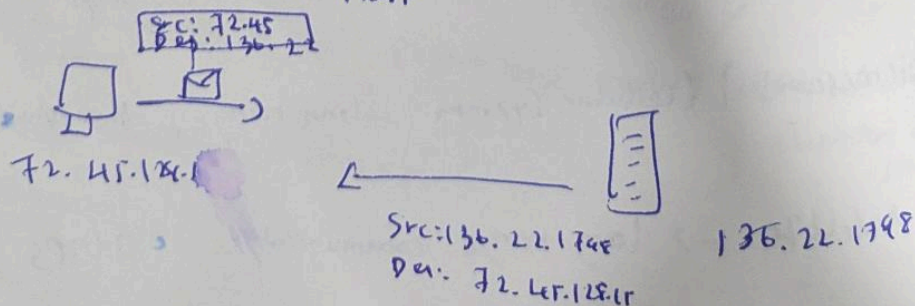 Src: 72.45
Des: 136.22
72.45.128.1
Src: 136.22.1798
Des: 72.45.128.15
136.22.1798